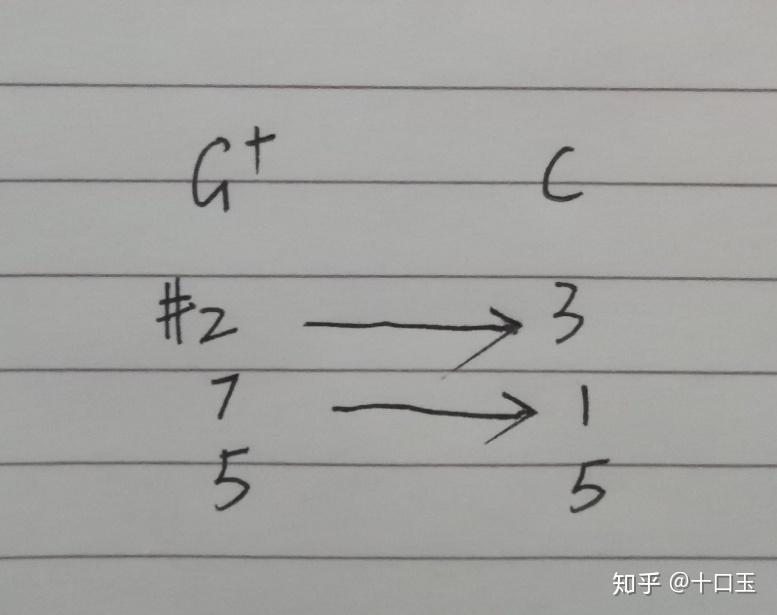 G+ C
#2 → 3
7 → 1
5 5
知乎 @十口玉